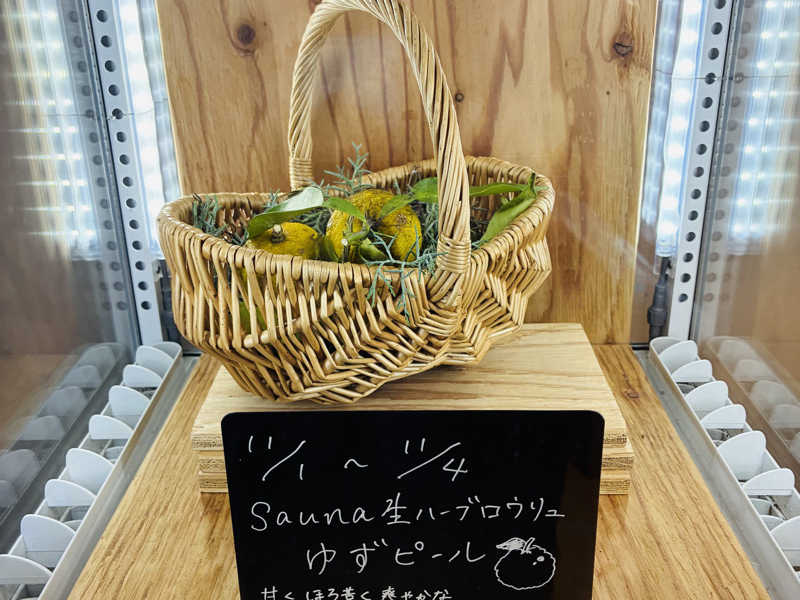 11/1 ~ 11/4
Sauna生ハーブロウリュ
ゆずピール
甘く ほろ苦く 爽やかな